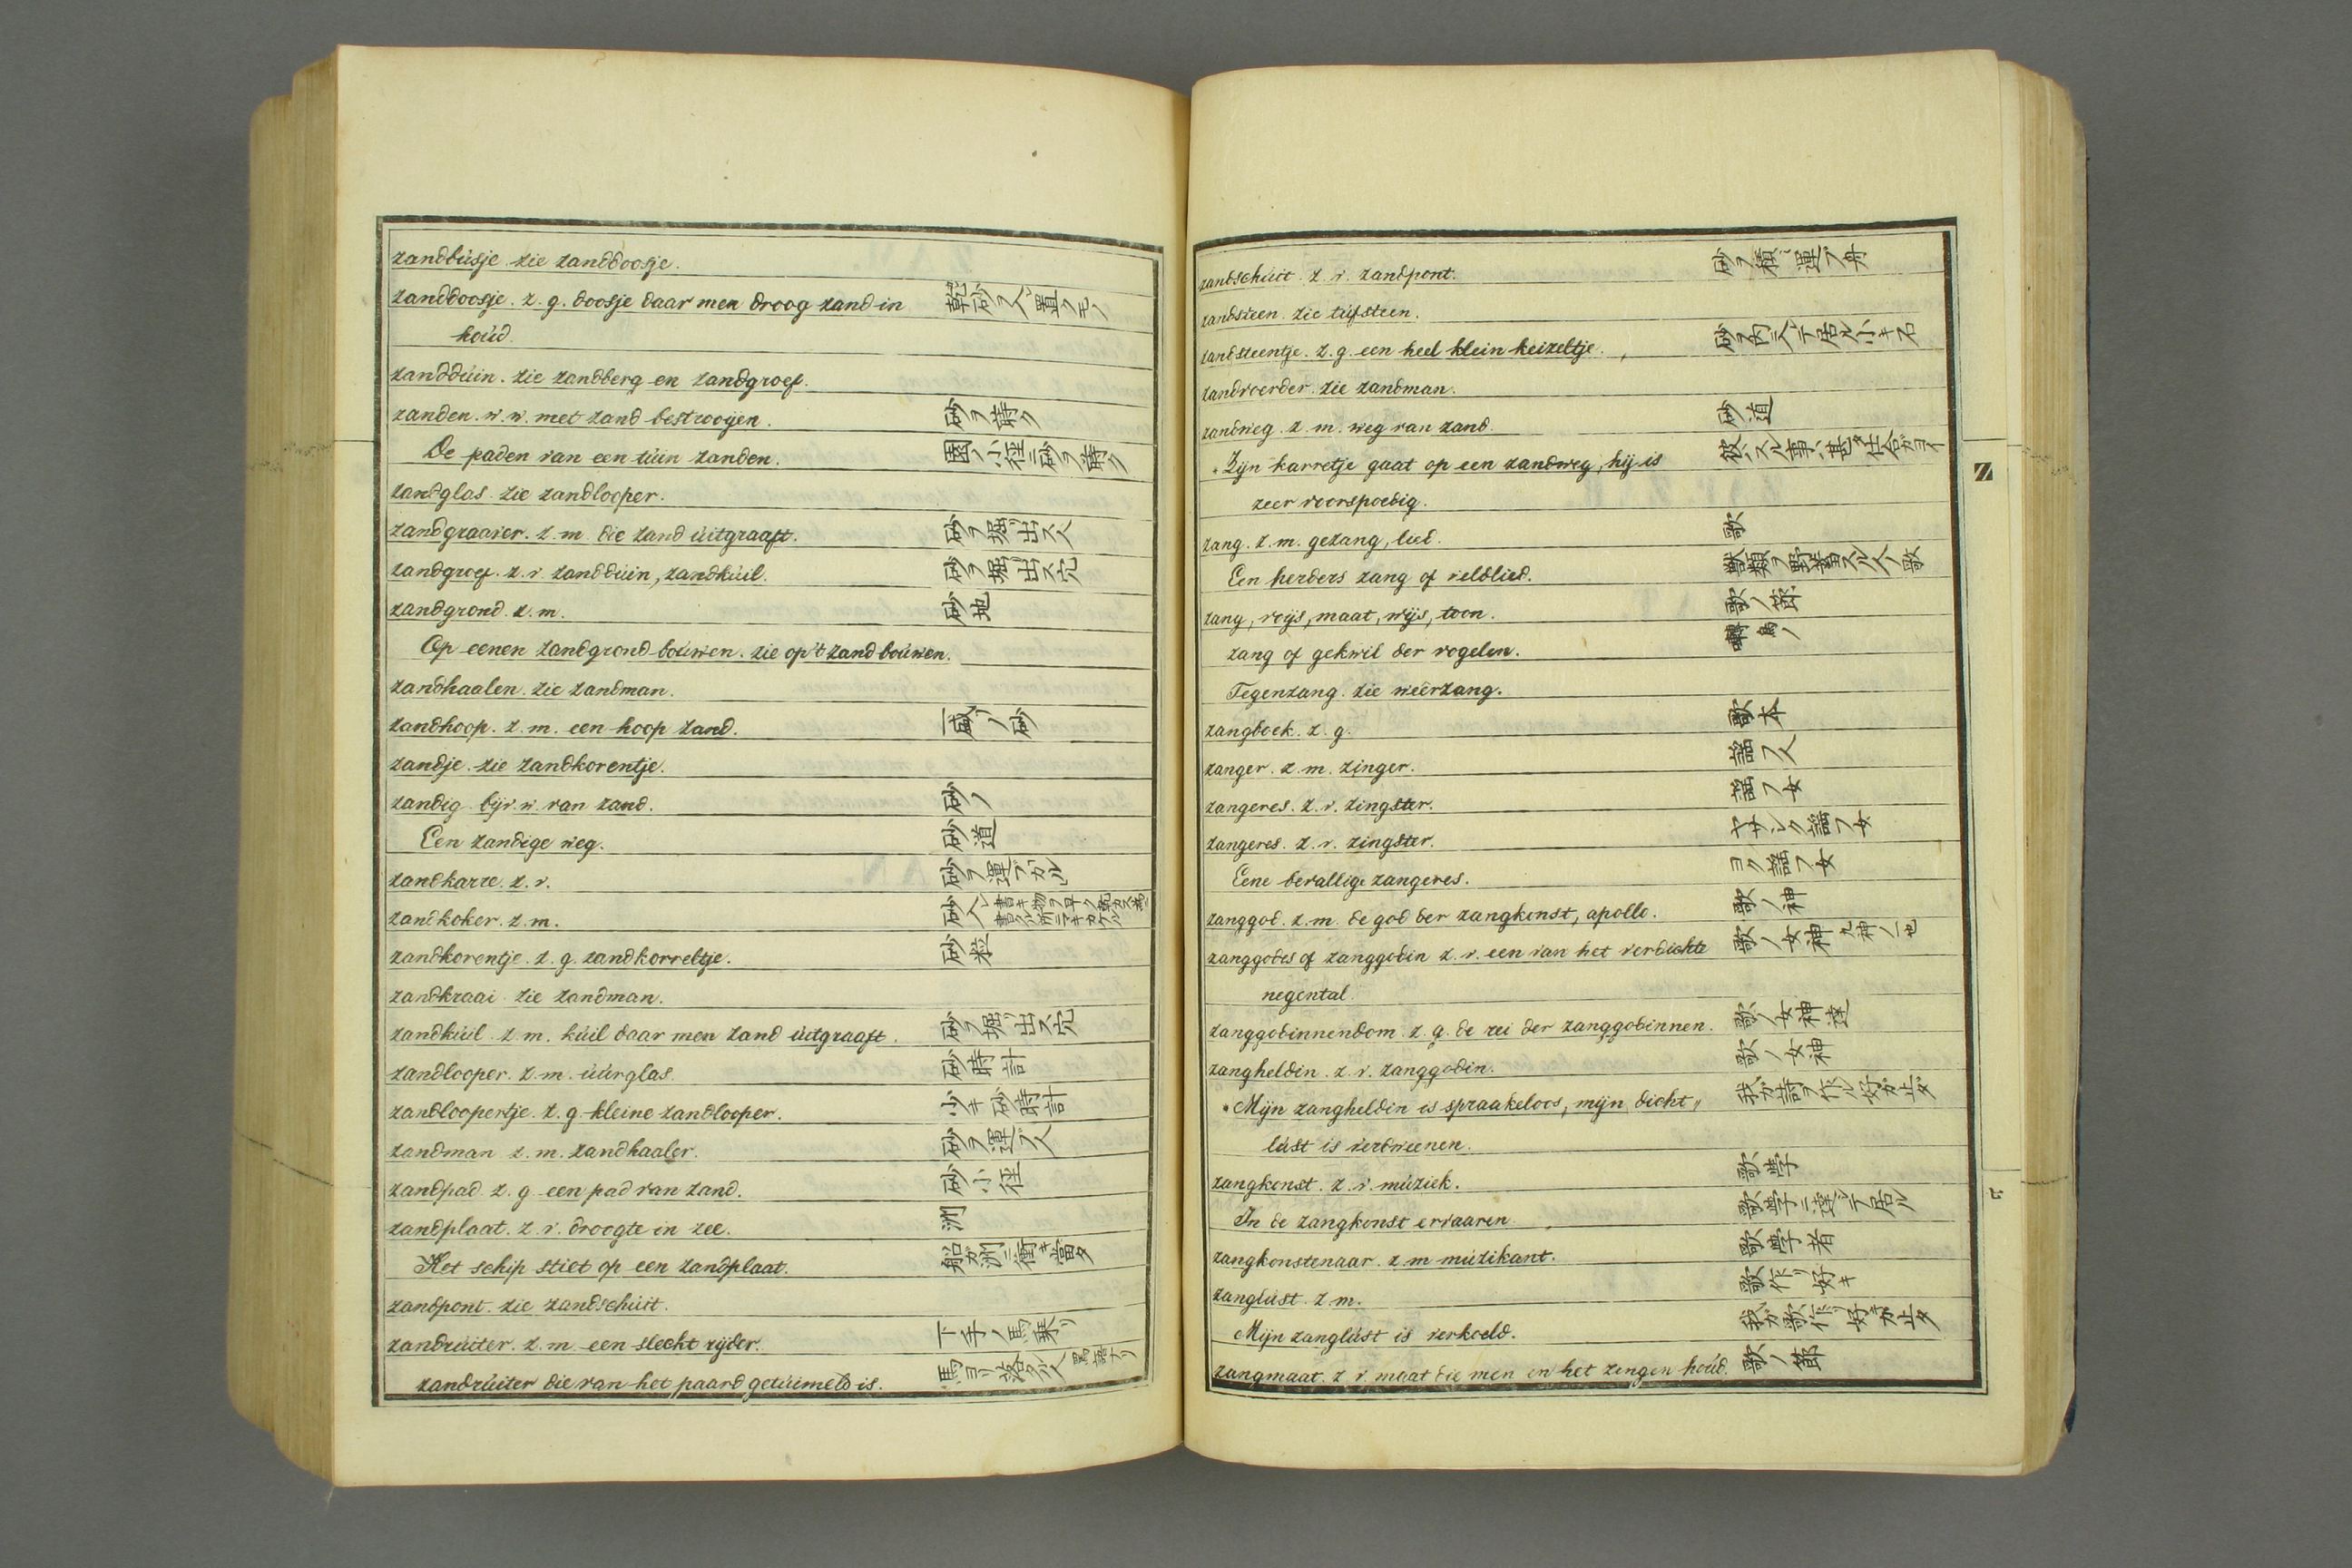 zandbúsje. zie zanddoosje.
zanddoosje. z. g. doosje daar men droog zand in 乾砂ヲ入レ置クモノ
hoúd.
zanddúin. zie zandberg en zandgroef.
zanden. w. w. met zand bestrooyen. 砂ヲ蒔ク
De paden van een túin zanden. 園ノ小径ニ砂ヲ蒔ク
zandglas. zie zandlooper.
zandgraaver. z. m. die zand úitgraaft. 砂ヲ堀リ出ス人
zandgroef. z. v. zanddúin, zandkúil. 砂ヲ堀リ出ス穴
zandgrond. z. m. 砂地
Op eenen zandgrond boúwen. zie op't zand boúwen.
zandhaalen. zie zandman.
zandhoop. z. m. een hoop zand. 一盛リノ砂
zandje. zie zandkorentje.
zandig. bijv. w. van zand. 砂ノ
Een zandige weg. 砂道
zandkarre. z. v. 砂ヲ運ブカル
zandkoker. z. m. 砂入レ
zandkorentje. z. g. zandkorreltje. 砂粒
zandkraai. zie zandman.
zandkúil. z. m. kúil daar men zand úitgraaft. 砂ヲ堀リ出ス穴
zandlooper. z. m. úúrglas. 砂時計
zandloopertje. z. g. kleine zandlooper. 少キ砂時計
zandman z. m. zandhaaler. 砂ヲ運ブ人
zandpad. z. g. een pad van zand. 砂小径
zandplaat. z. v. droogte in zee. 洲
Het schip stiet op een zandplaat. 船ガ洲ニ衝キ當タ
zandpont. zie zandschúit.
zandrúiter. z. m. een slecht ryder. 下手ノ馬乗リ
zandrúiter die van het paard getúimeld is. 馬ヨリ落タル人
zandschúit. z. v. zandpont. 砂ヲ積ミ運ブ舟
zandsteen. zie túfsteen.
zandsteentje. z. g. een heel klein keizeltje. 砂ノ内ニ入テ居ル小キ石
zandvoerder. zie zandman.
zandweg. z. m. weg van zand. 砂道
„Zijn karretje gaat op een zandweg, hij is 彼ノスル事ハ甚タ仕合ガヨイ
zeer voorspoedig.
zang. z. m. gezang, lied. 歌
Een herders zang of veldlied. 獣類ヲ野畜スル人ノ歌
zang, voys, maat, wijs, toon. 歌ノ節
zang of gekwil der vogelen. 鳥ノ囀
Tegenzang. zie weêrzang.
zangboek. z. g. 歌本
zanger. z. m. zinger. 謡フ人
zangeres. z. v. zingster. 謡フ女
zangeres. z. v. zingster. ヤサシク謡フ女
Eene bevallige zangeres. ヨク謡フ女
zanggod. z. m. de god der zangkonst, apollo. 歌ノ神
zanggodes of zanggodin z. v. een van het verdichte 歌ノ女神 九神ノ一也
negental.
zanggodinnendom. z. g. de rei der zanggodinnen. 歌ノ女神達
zangheldin. z. v. zanggodin. 歌ノ女神
„Mijn zangheldin is spraakeloos, mijn dicht„ 我ガ詩ヲ作ル好ガ止タ
lúst is verdweenen.
zangkonst. z. v. múziek. 歌學
In de zangkonst ervaaren. 歌學ニ達シテ居ル
zangkonstenaar. z. m. múzikant. 歌學者
zanglúst. z. m. 歌作リ好キ
Mijn zanglúst is verkoeld. 我ガ歌作リ好キガ止タ
zangmaat. z. v. maat die men in het zingen hoúd. 歌ノ節
Z